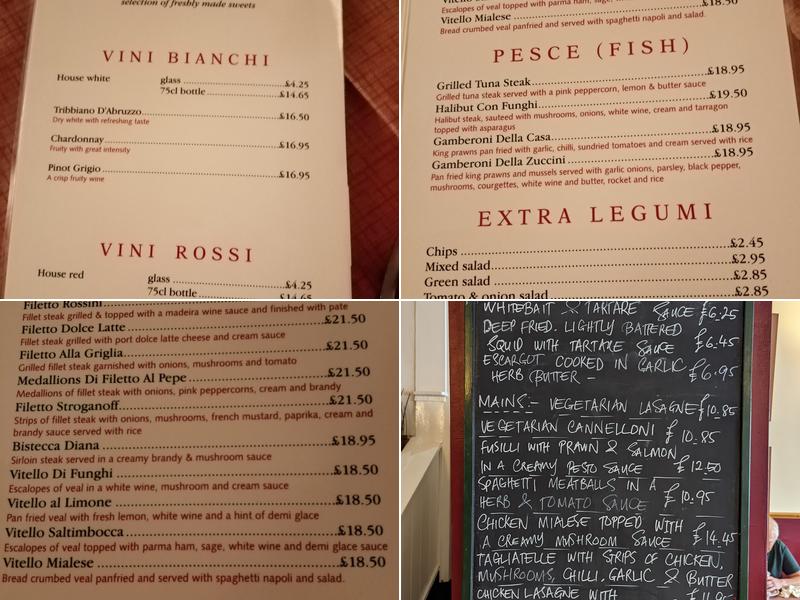 selection of freshly made sweets
VINI BIANCHI
House white glass £4.25
75cl bottle £14.65
Tribbiano D'Abruzzo £16.50
Dry white with refreshing taste
Chardonnay £16.95
Fruity with great intensity
Pinot Grigio £16.95
A crisp fruity wine
VINI ROSSI
House red glass £4.25
75cl bottle £14.65
Escalopes of veal topped with parma ham, sage,
Vitello Mialese £18.50
Bread crumbed veal panfried and served with spaghetti napoli and salad.
PESCE (FISH)
Grilled Tuna Steak £18.95
Grilled tuna steak served with a pink peppercorn, lemon & butter sauce
Halibut Con Funghi £19.50
Halibut steak, sauteed with mushrooms, onions, white wine, cream and tarragon
topped with asparagus
Gamberoni Della Casa £18.95
King prawns pan fried with garlic, chilli, sundried tomatoes and cream served with rice
Gamberoni Della Zuccini £18.95
Pan fried king prawns and mussels served with garlic onions, parsley, black pepper,
mushrooms, courgettes, white wine and butter, rocket and rice
EXTRA LEGUMI
Chips £2.45
Mixed salad £2.95
Green salad £2.85
Tomato & onion salad £2.85
Filetto Rossini
Fillet steak grilled & topped with a madeira wine sauce and finished with pate
Filetto Dolce Latte £21.50
Fillet steak grilled with port dolce latte cheese and cream sauce
Filetto Alla Griglia £21.50
Grilled fillet steak garnished with onions, mushrooms and tomato
Medallions Di Filetto Al Pepe £21.50
Medallions of fillet steak with onions, pink peppercorns, cream and brandy
Filetto Stroganoff £21.50
Strips of fillet steak with onions, mushrooms, french mustard, paprika, cream and
brandy sauce served with rice
Bistecca Diana £18.95
Sirloin steak served in a creamy brandy & mushroom sauce
Vitello Di Funghi £18.50
Escalopes of veal in a white wine, mushroom and cream sauce
Vitello al Limone £18.50
Pan fried veal with fresh lemon, white wine and a hint of demi glace
Vitello Saltimbocca £18.50
Escalopes of veal topped with parma ham, sage, white wine and demi glace sauce
Vitello Mialese £18.50
Bread crumbed veal panfried and served with spaghetti napoli and salad.
WHITEBAIT & TARTARE SAUCE £6.25
DEEP FRIED. LIGHTLY BATTERED
SQUID WITH TARTARE SAUCE £6.45
ESCARGOT COOKED IN GARLIC
HERB BUTTER - £6.95
MAINS:- VEGETARIAN LASAGNE £10.85
VEGETARIAN CANNELLONI £10.85
FUSILLI WITH PRAWN & SALMON
IN A CREAMY PESTO SAUCE £12.50
SPAGHETTI MEATBALLS IN A
HERB & TOMATO SAUCE £10.95
CHICKEN MIALESE TOPPED WITH
A CREAMY MUSHROOM SAUCE £14.45
TAGLIATELLE WITH STRIPS OF CHICKEN,
MUSHROOMS, CHILLI, GARLIC & BUTTER
CHICKEN LASAGNE WITH